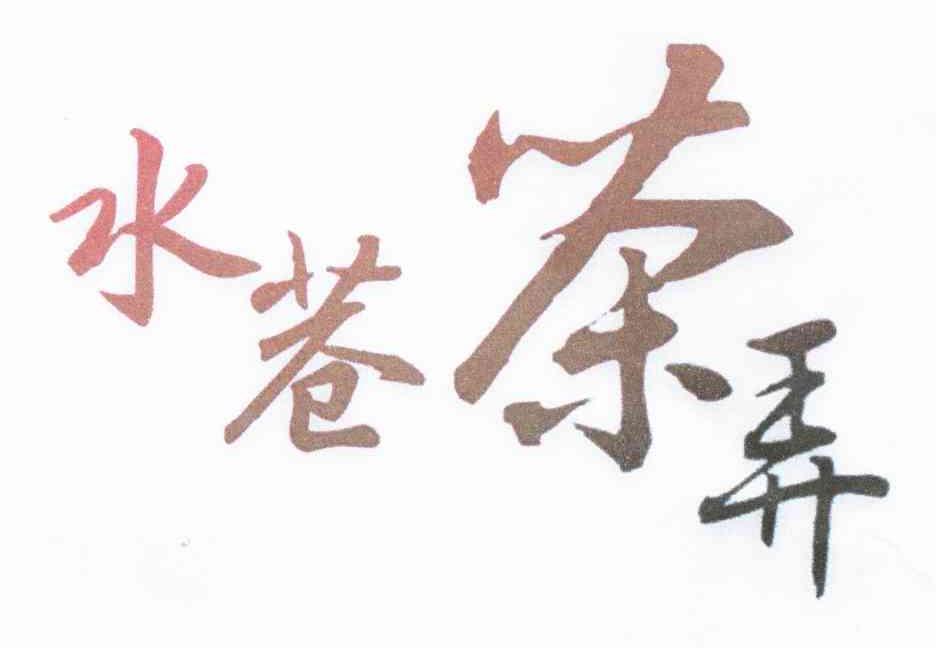 水巷茶弄